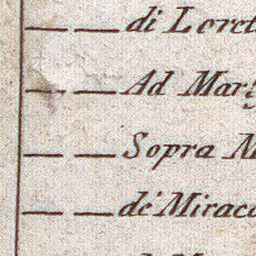 — — di Loret
— — Ad Marg
— — Sopra M
— — de' Miraco